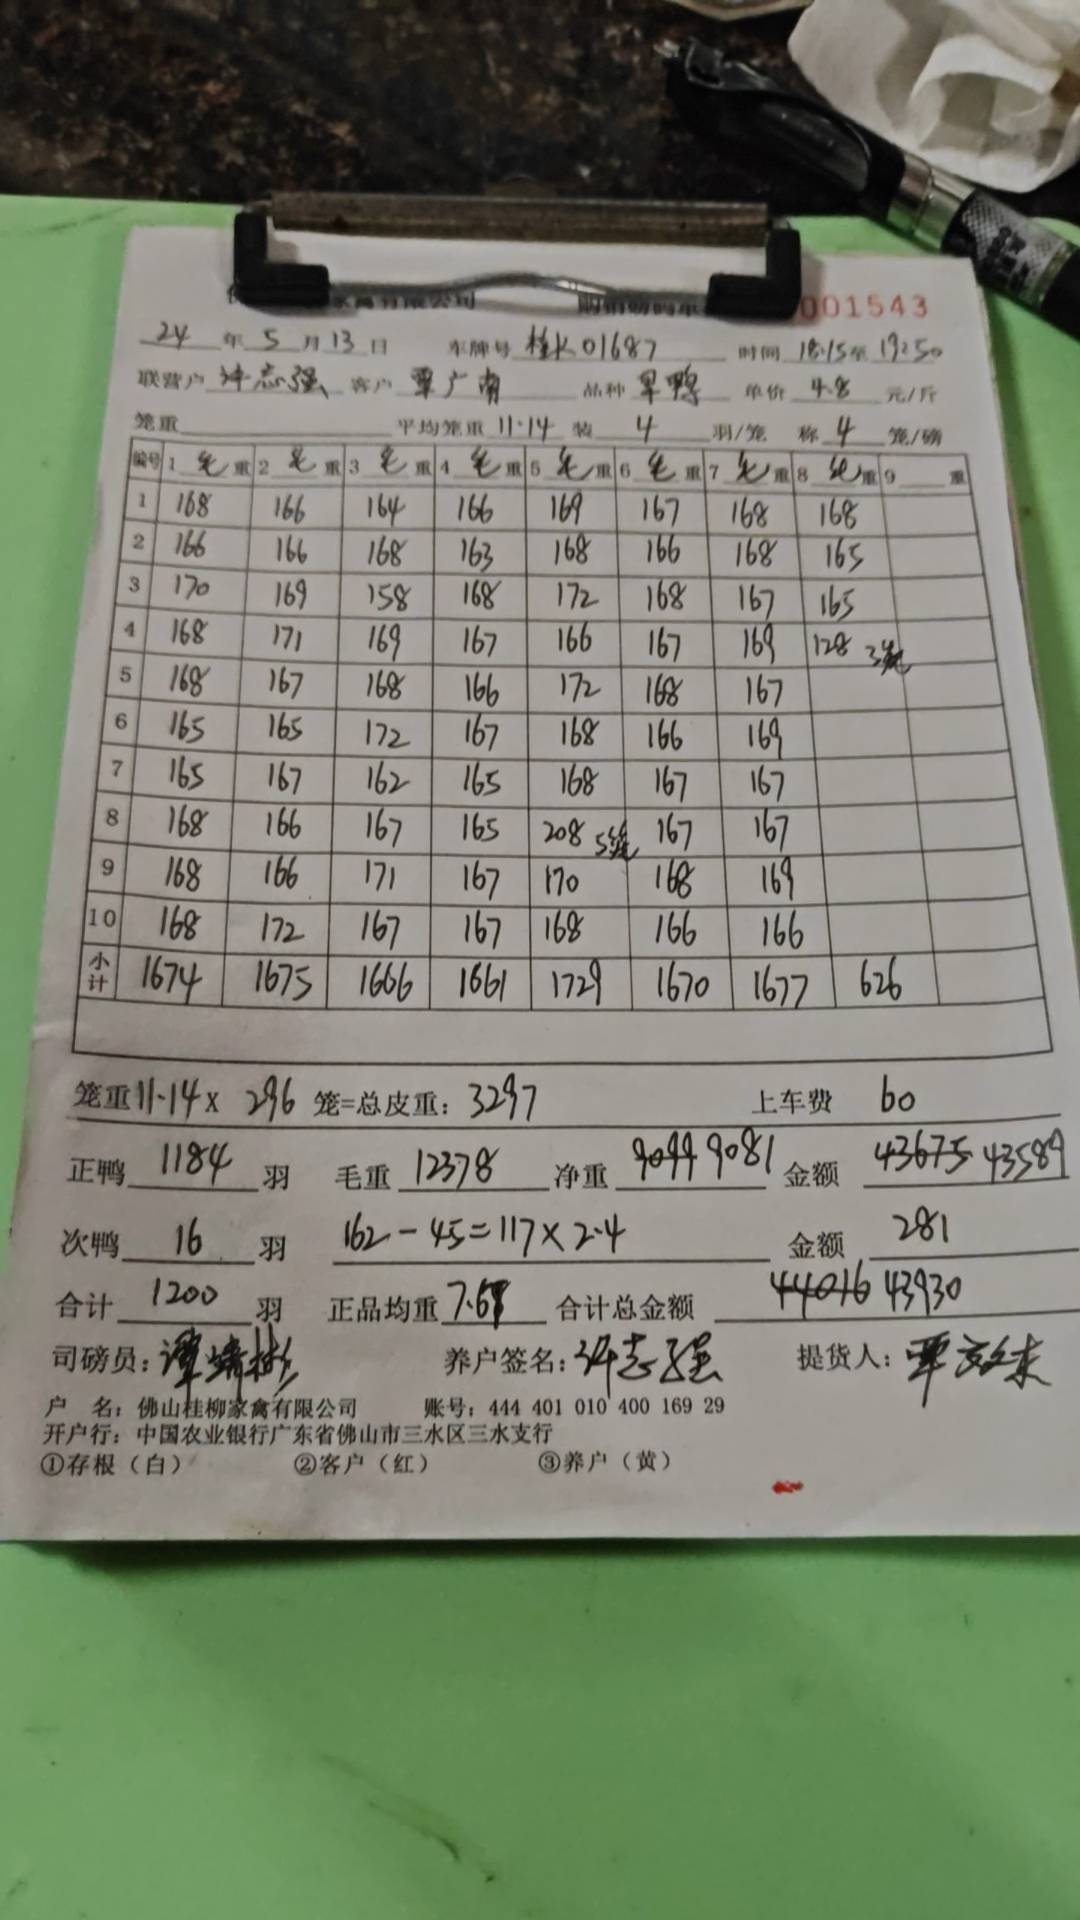 家禽有限公司 购销过磅单 001543
24 年 5 月 13 日 车牌号 桂K01687 时间 18:15至 19:50
联营户 许志强 客户 覃广南 品种 旱鸭 单价 4.8 元/斤
笼重 平均笼重 11.14 装 4 羽/笼 称 4 笼/磅
编号 1 毛 重 2 毛 重 3 毛 重 4 毛 重 5 毛 重 6 毛 重 7 毛 重 8 毛 重 9 重
1 168 166 164 166 169 167 168 168
2 166 166 168 163 168 166 168 165
3 170 169 158 168 172 168 167 165
4 168 171 169 167 166 167 169 128 3笼
5 168 167 168 166 172 168 167
6 165 165 172 167 168 166 169
7 165 167 162 165 168 167 167
8 168 166 167 165 208 5笼 167 167
9 168 166 171 167 170 168 169
10 168 172 167 167 168 166 166
小计 1674 1675 1666 1661 1729 1670 1677 626
笼重 11.14 x 296 笼=总皮重: 3297 上车费 60
正鸭 1184 羽 毛重 12378 净重 9099 9081 金额 43675 43589
次鸭 16 羽 162-45=117×2.4 金额 281
合计 1200 羽 正品均重 7.67 合计总金额 44016 43930
司磅员: 养户签名: 许志强 提货人: 覃
户 名: 佛山桂柳家禽有限公司 账号: 444 401 010 400 169 29
开户行: 中国农业银行广东省佛山市三水区三水支行
①存根（白） ②客户（红） ③养户（黄）